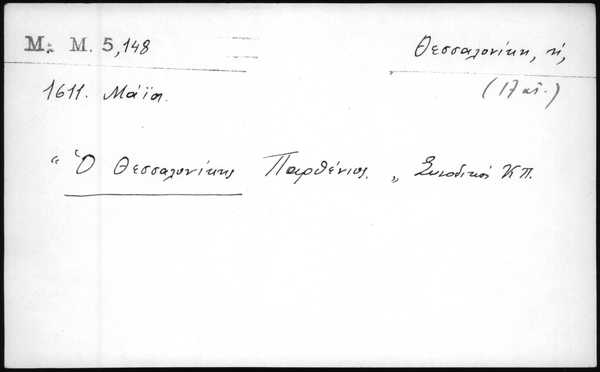 M. M. 5,148
Θεσσαλονίκη, ἡ,
(17 αἰ.)
1611. Μάϊοι.
"Ὁ Θεσσαλονίκης Παρθένιος." Συνοδικοί ΚΠ.